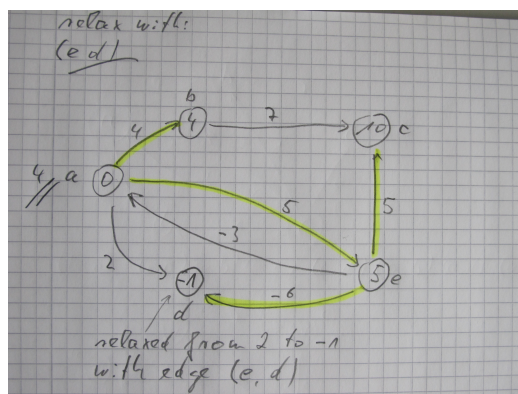 relax with:
(e d)
b
4
4
7
10 c
4 // a
0
5
5
-3
2
-1
d
-6
5 e
relaxed from 2 to -1
with edge (e, d)